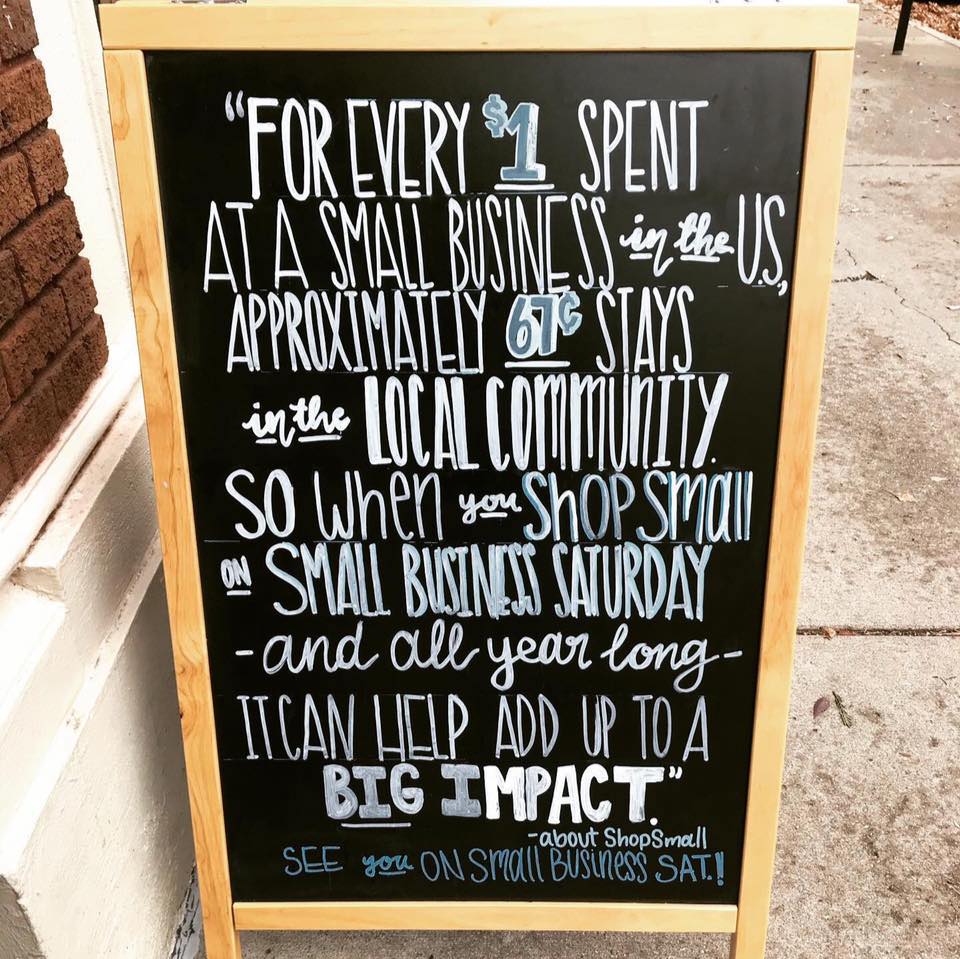 "FOR EVERY $1 SPENT
AT A SMALL BUSINESS in the U.S.,
APPROXIMATELY 67¢ STAYS
in the LOCAL COMMUNITY.
SO when you ShOP Small
ON SMALL BUSINESS SATURDAY
- and all year long -
IT CAN HELP ADD UP TO A
BIG IMPACT."
-about ShopSmall
SEE you ON Small Business SAT.!